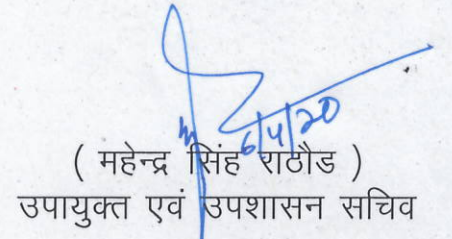 6/4/20
( महेन्द्र सिंह राठौड )
उपायुक्त एवं उपशासन सचिव